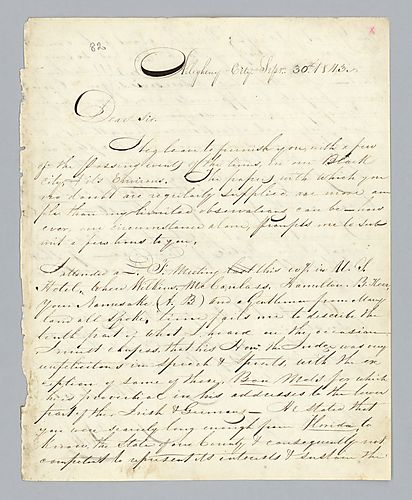 82
x
Allegheny City Sepr. 30th 1843.
Dear Sir.
I beg leave to furnish you, with a few
of the passing events of the times, in our Black
City, & its Environs. The papers with which you
no doubt are regularly supplied are more am
ple than my limited observations can be - how
ever, one circumstance alone, prompts me to sub
mit a few lines to you.
I attended a T. Meeting at the U. S.
Hotel, where Wilkins, McCandlass, Hamilton
Your Namesake (A. B) and a Gentleman from Mary
land all spoke, time fails me to describe the
tenth part of what I heard on the occasion
I must express, that his Hon. the Judge was very
in Speech & Spirits, with the ex
ception of some of those Bon Mots for which
he is proverbial in his addresses to the lower
part of the Irish & Germans - He stated that
you were scarcely long enough from Florida, to
know the State, or County & consequently not
competent to represent its interests & sustain the